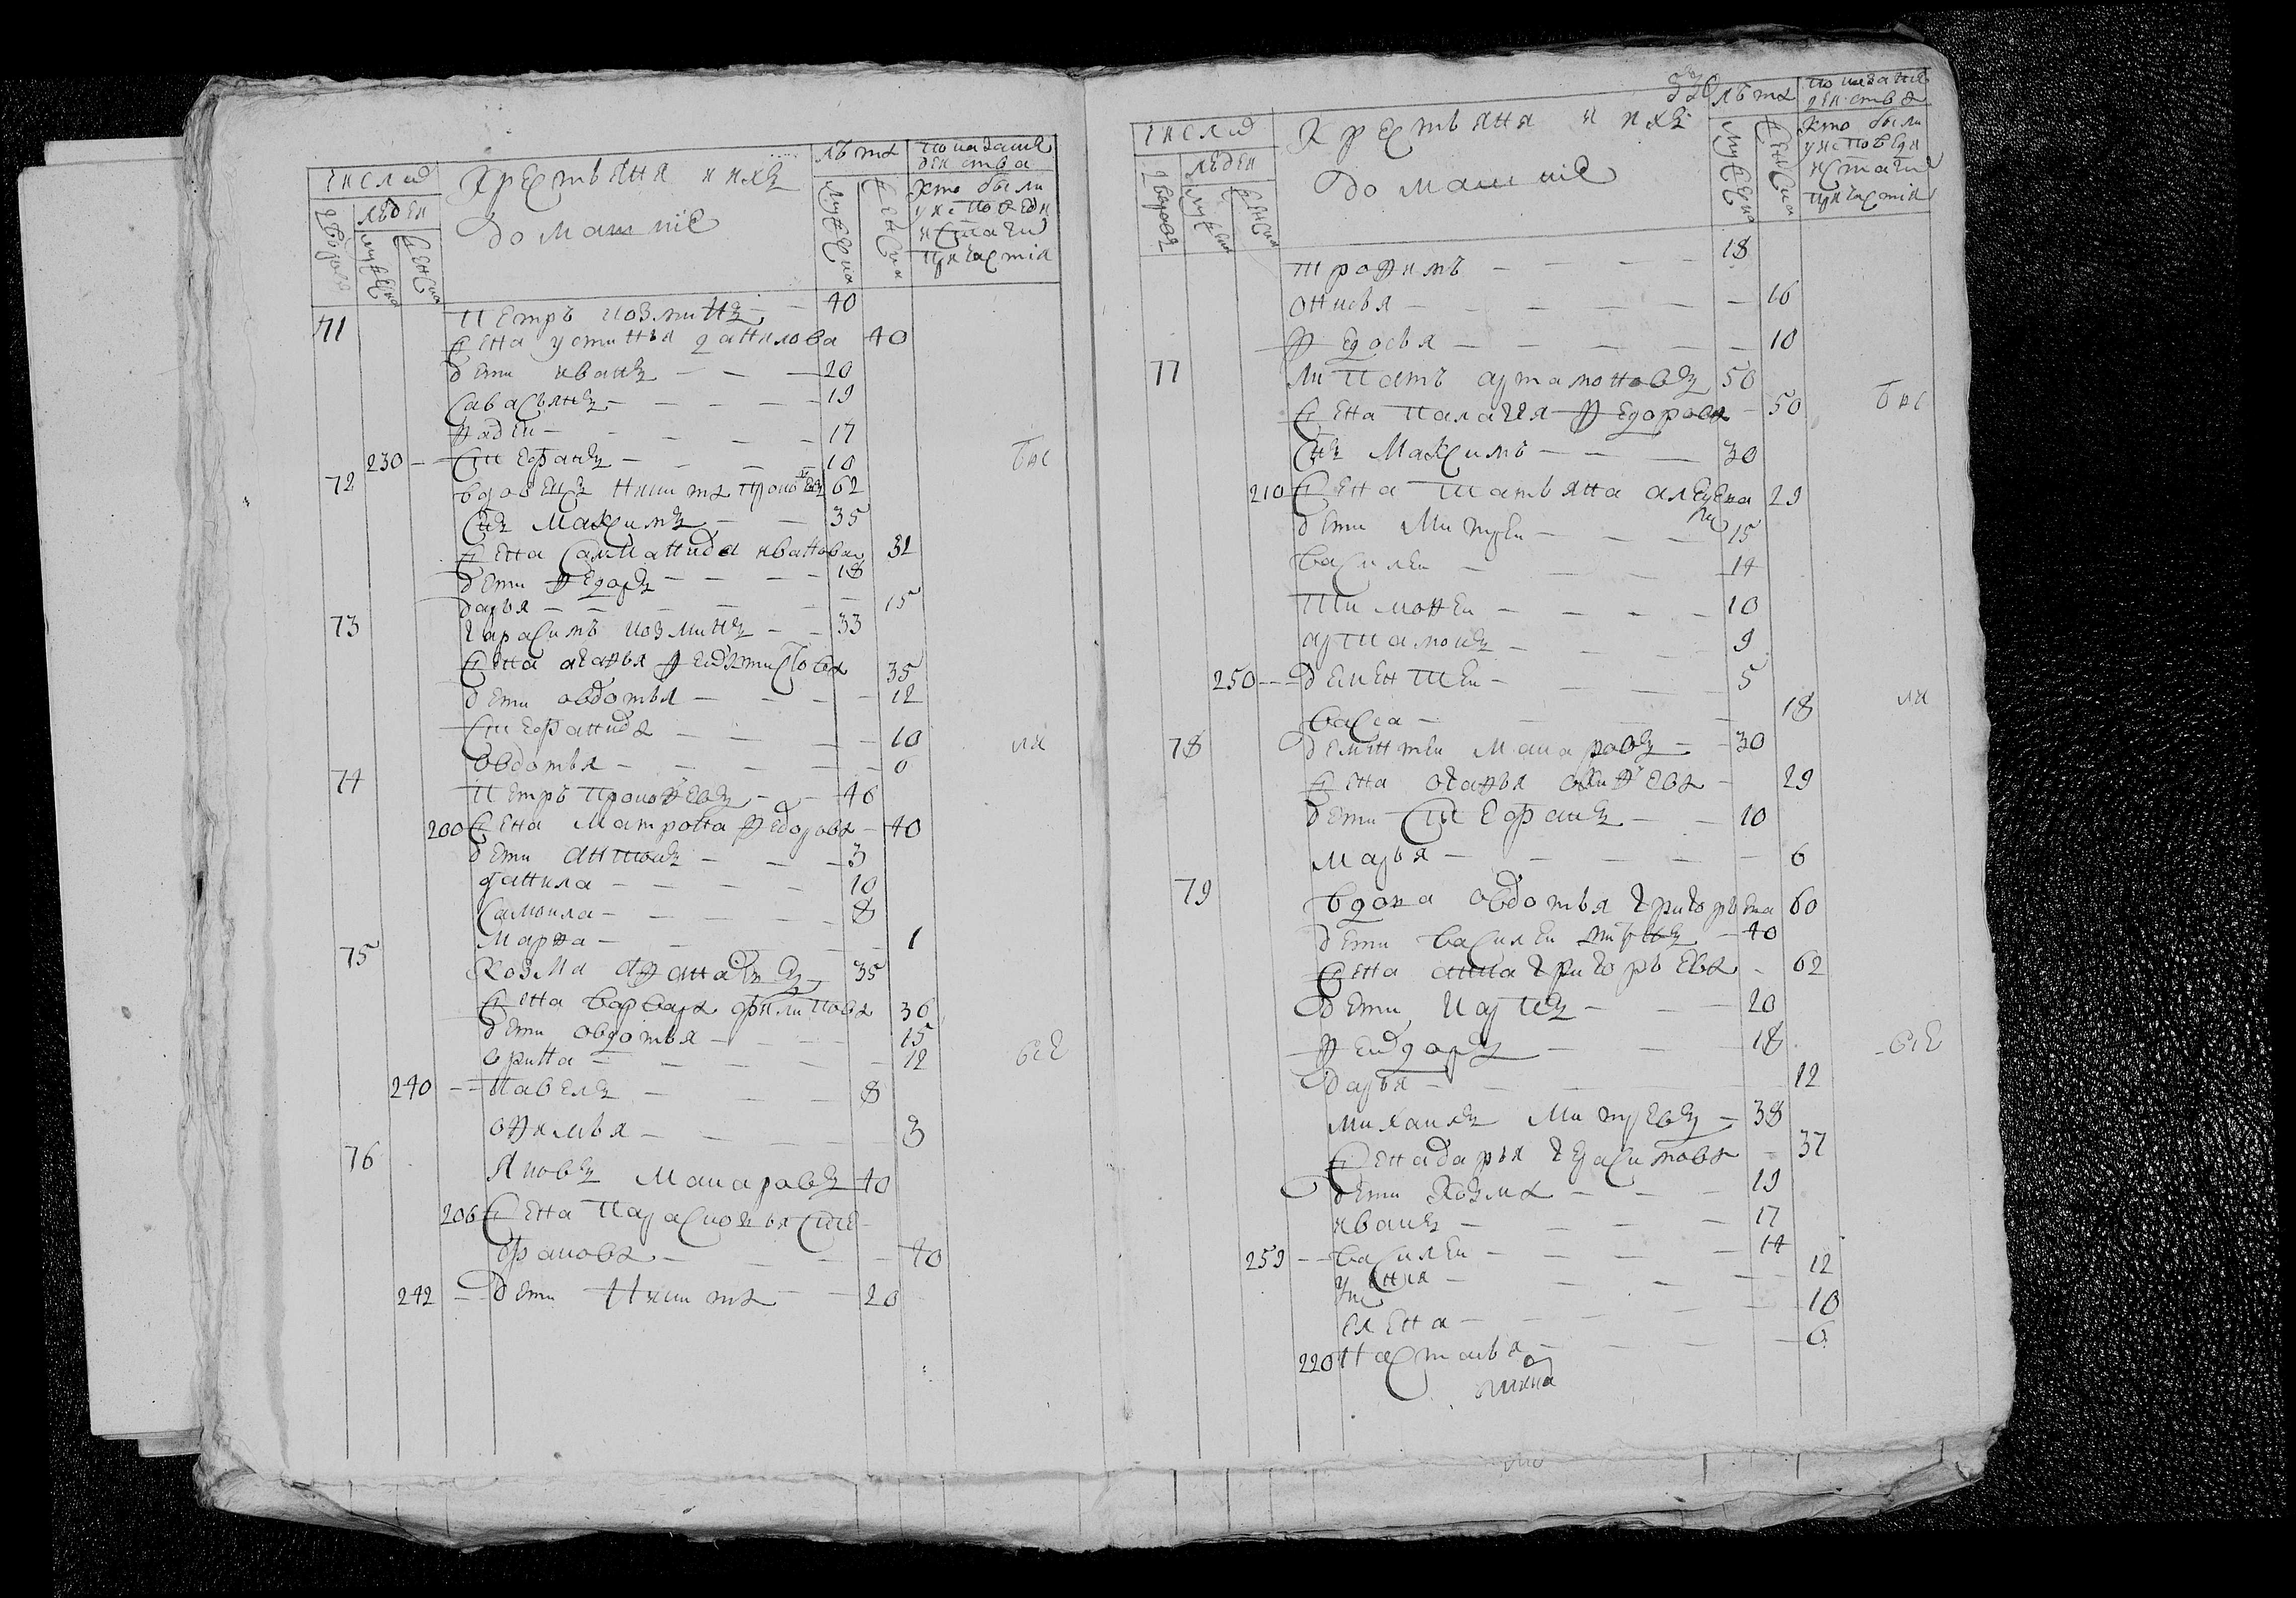 число
дворовъ
людеи
мужеска
женска
Крестьяня и ихъ
домашние
лѣта
мужеска
женска
показание
действа
кто были
у исповеди
и святаго
причастия
71 Петръ козминъ 40
жена устинья данилова 40
дети иванъ 20
Савасьянъ 19
фадеи 17
230 Степанъ 10
72 вдовецъ никита 62
Снъ Максимъ 35
жена Саломанида иванова 32
дети федоръ 18
дарья 15
73 гарасимъ козминъ 33
жена агафья 35
дети овдотья 12
Степанида 10
овдотья 0
74 Петръ 40
200 жена Матрона федорова 40
дети антонъ 3
данила 10
Самоила 8
марфа 1
75 Козма 35
жена варвара филипова 36
дети овдотья 15
орина 12
240 павелъ 8
офимья 3
76 Яковъ макаровъ 40
206 жена Парасковья Сте
фанова 40
242 дети Никита 20
бы
ли
все
530
число
дворовъ
людеи
мужеска
женска
Крестьяня и ихъ
домашние
лѣта
мужеска
женска
показание
действа
кто были
у исповеди
и святаго
причастия
трофимъ 18
онисья 16
федосья 10
77 ипатъ артамоновъ 50
жена палагея федорова 50
Снъ Максимъ 30
210 жена Татьяна 29
дети Митреи 15
василеи 14
Тимофеи 10
артамонъ 9
250 дементеи 5
васса 18
78 дементеи макаровъ 30
жена агафья 29
дети Степанъ 10
марья 6
79 вдова овдотья григорьева 60
дети василеи 40
жена анна григорьева 62
дети карпъ 20
федоръ 18
дарья 12
михаила Митревъ 38
жена дарья герасимова 37
дети Козма 19
иванъ 17
259 василеи 14
12
елена 10
220 настасья 6
бы
ли
все